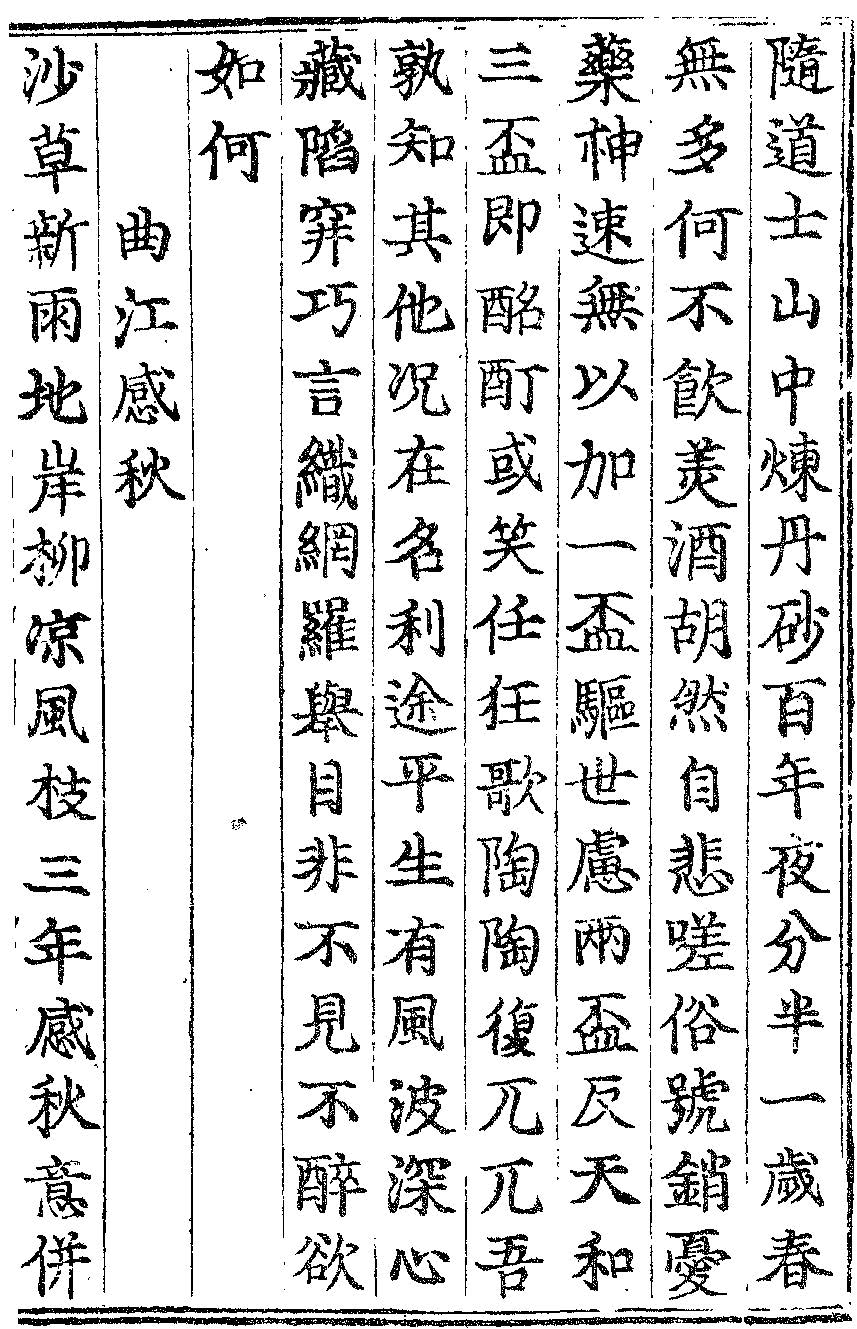 隨道士山中煉丹砂百年夜分半一歲春
無多何不飲美酒胡然自悲嗟俗號銷憂
藥神速無以加一盃驅世慮兩盃反天和
三盃即酩酊或笑任狂歌陶陶復兀兀吾
孰知其他况在名利途平生有風波深心
藏陷穽巧言織網羅舉目非不見不醉欲
如何
曲江感秋
沙草新雨地岸柳凉風枝三年感秋意併